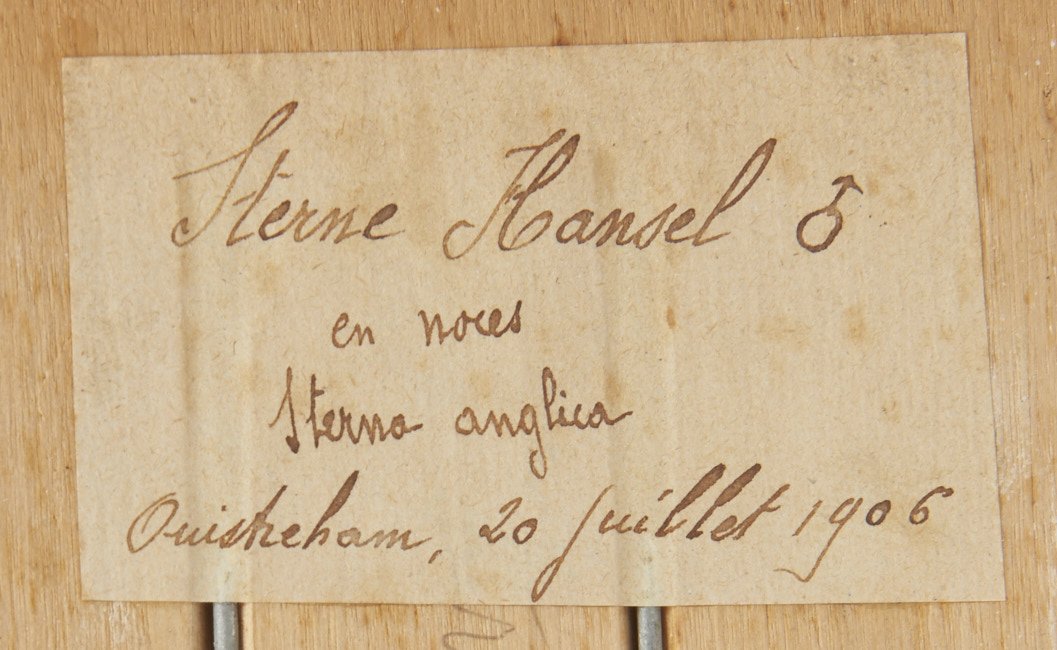 Sterne Hansel ♂
en noces
Sterna anglica
Ouistreham, 20 Juillet 1906